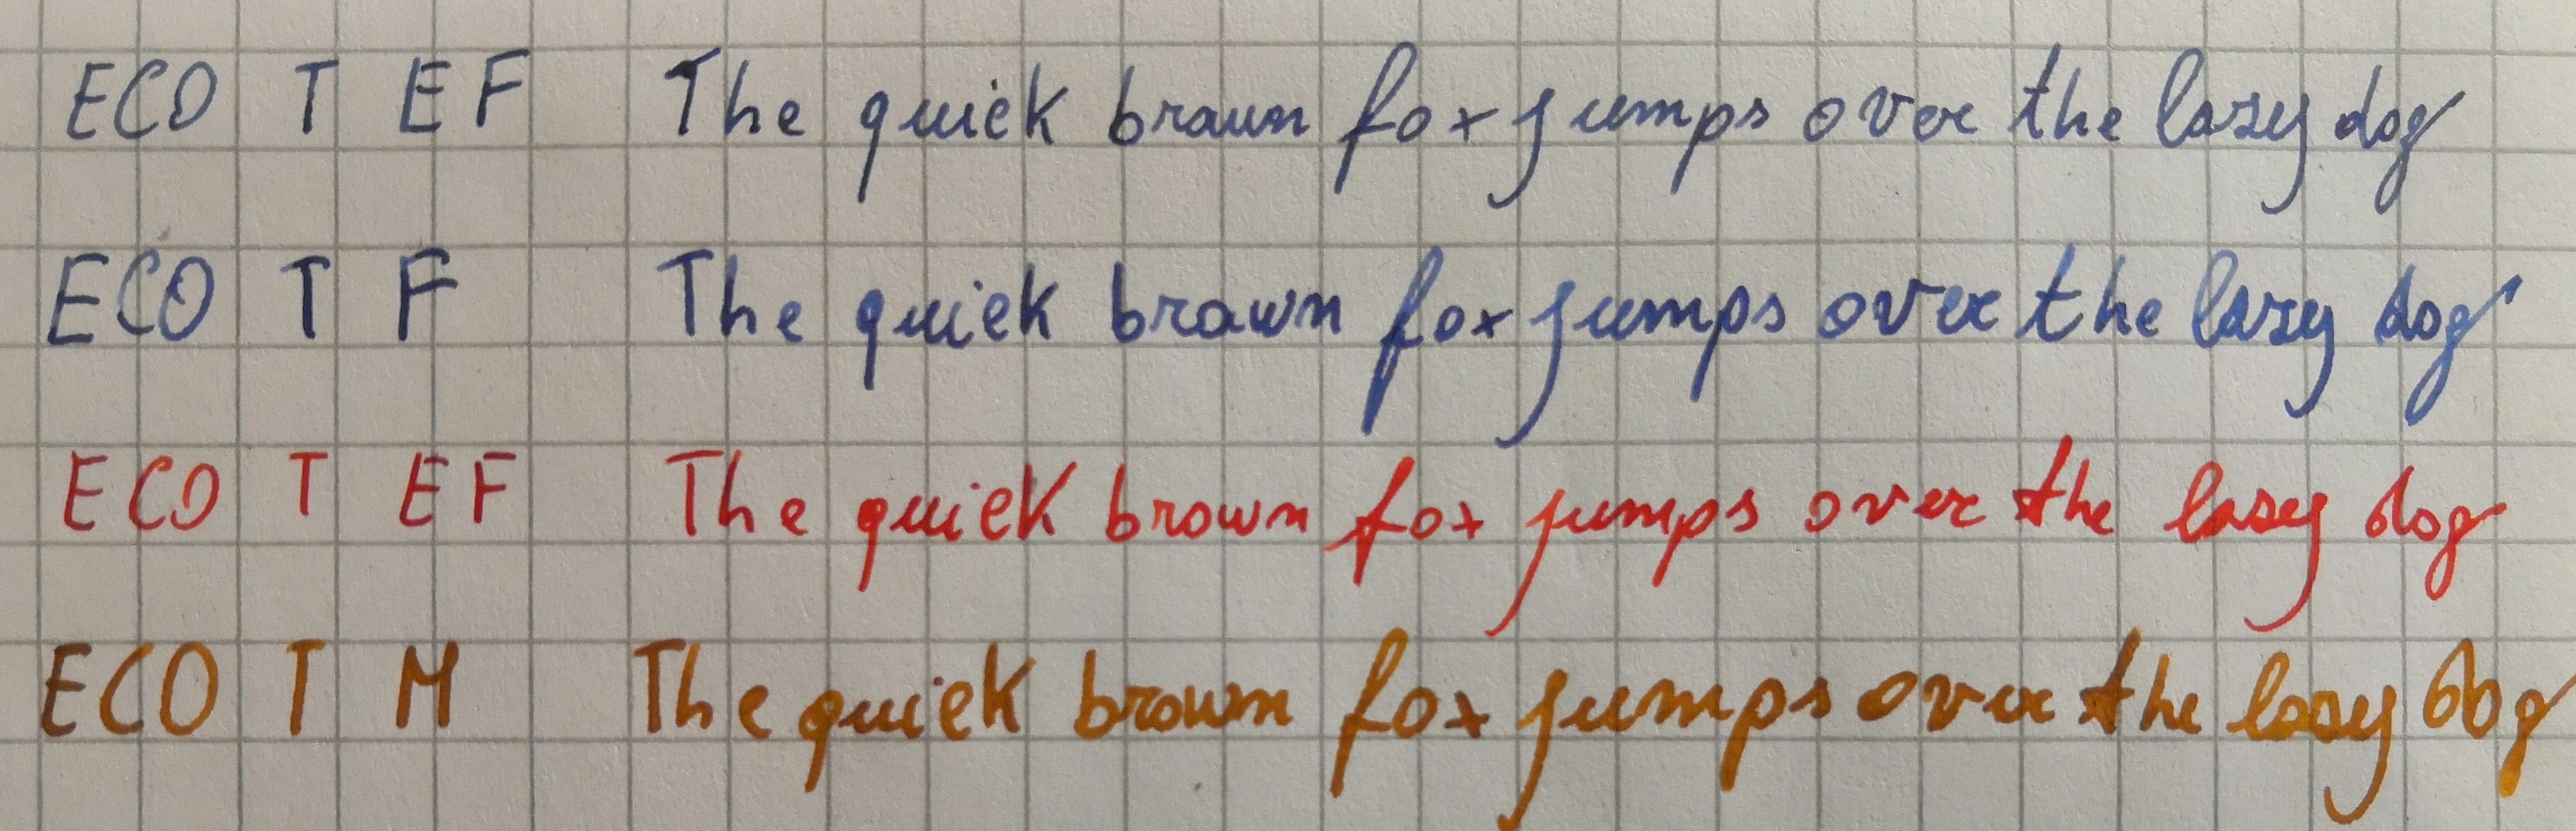 ECO T EF The quick brown fox jumps over the lazy dog
ECO T F The quick brown fox jumps over the lazy dog
ECO T EF The quick brown fox jumps over the lazy dog
ECO T M The quick brown fox jumps over the lazy dog